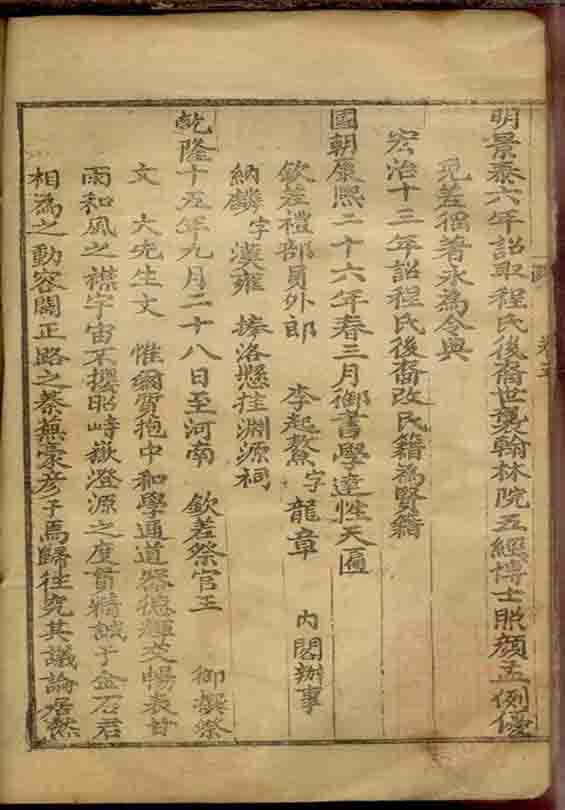 明景泰六年詔取程氏後裔世襲翰林院五經博士照顏孟例優
免差徭著永為令典
宏治十三年詔程氏後裔改民籍為賢籍
國朝康熙二十六年春三月御書學達性天匾
欽差禮部員外郎 李起鰲字龍章 內閣辦事
納麟字漢雍 捧洛懸挂淵源祠
乾隆十五年九月二十八日至河南 欽差祭官王 御撰祭
文 大先生文 惟爾質抱中和學通道器德輝交暢表甘
雨和風之襟宇宙不擾昭峙嶽澄源之度貫精誠于金石君
相為之動容闢正路之蓁蕪豪彥于焉歸往究其議論居然
卷五